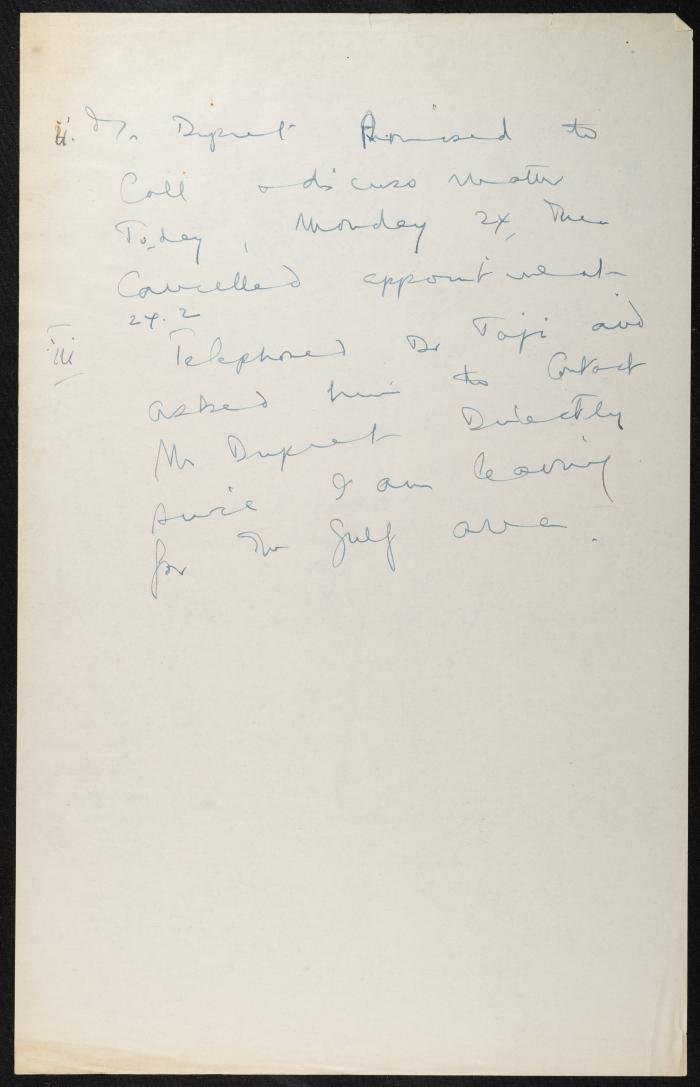 ii. Mr. Dupret Promised to
Call & discuss matter
Today, Monday 24, Then
Cancelled appointment
24.2
iii Telephoned Dr Taji and
asked him to Contact
Mr Dupret Directly
since I am leaving
for the Gulf area.